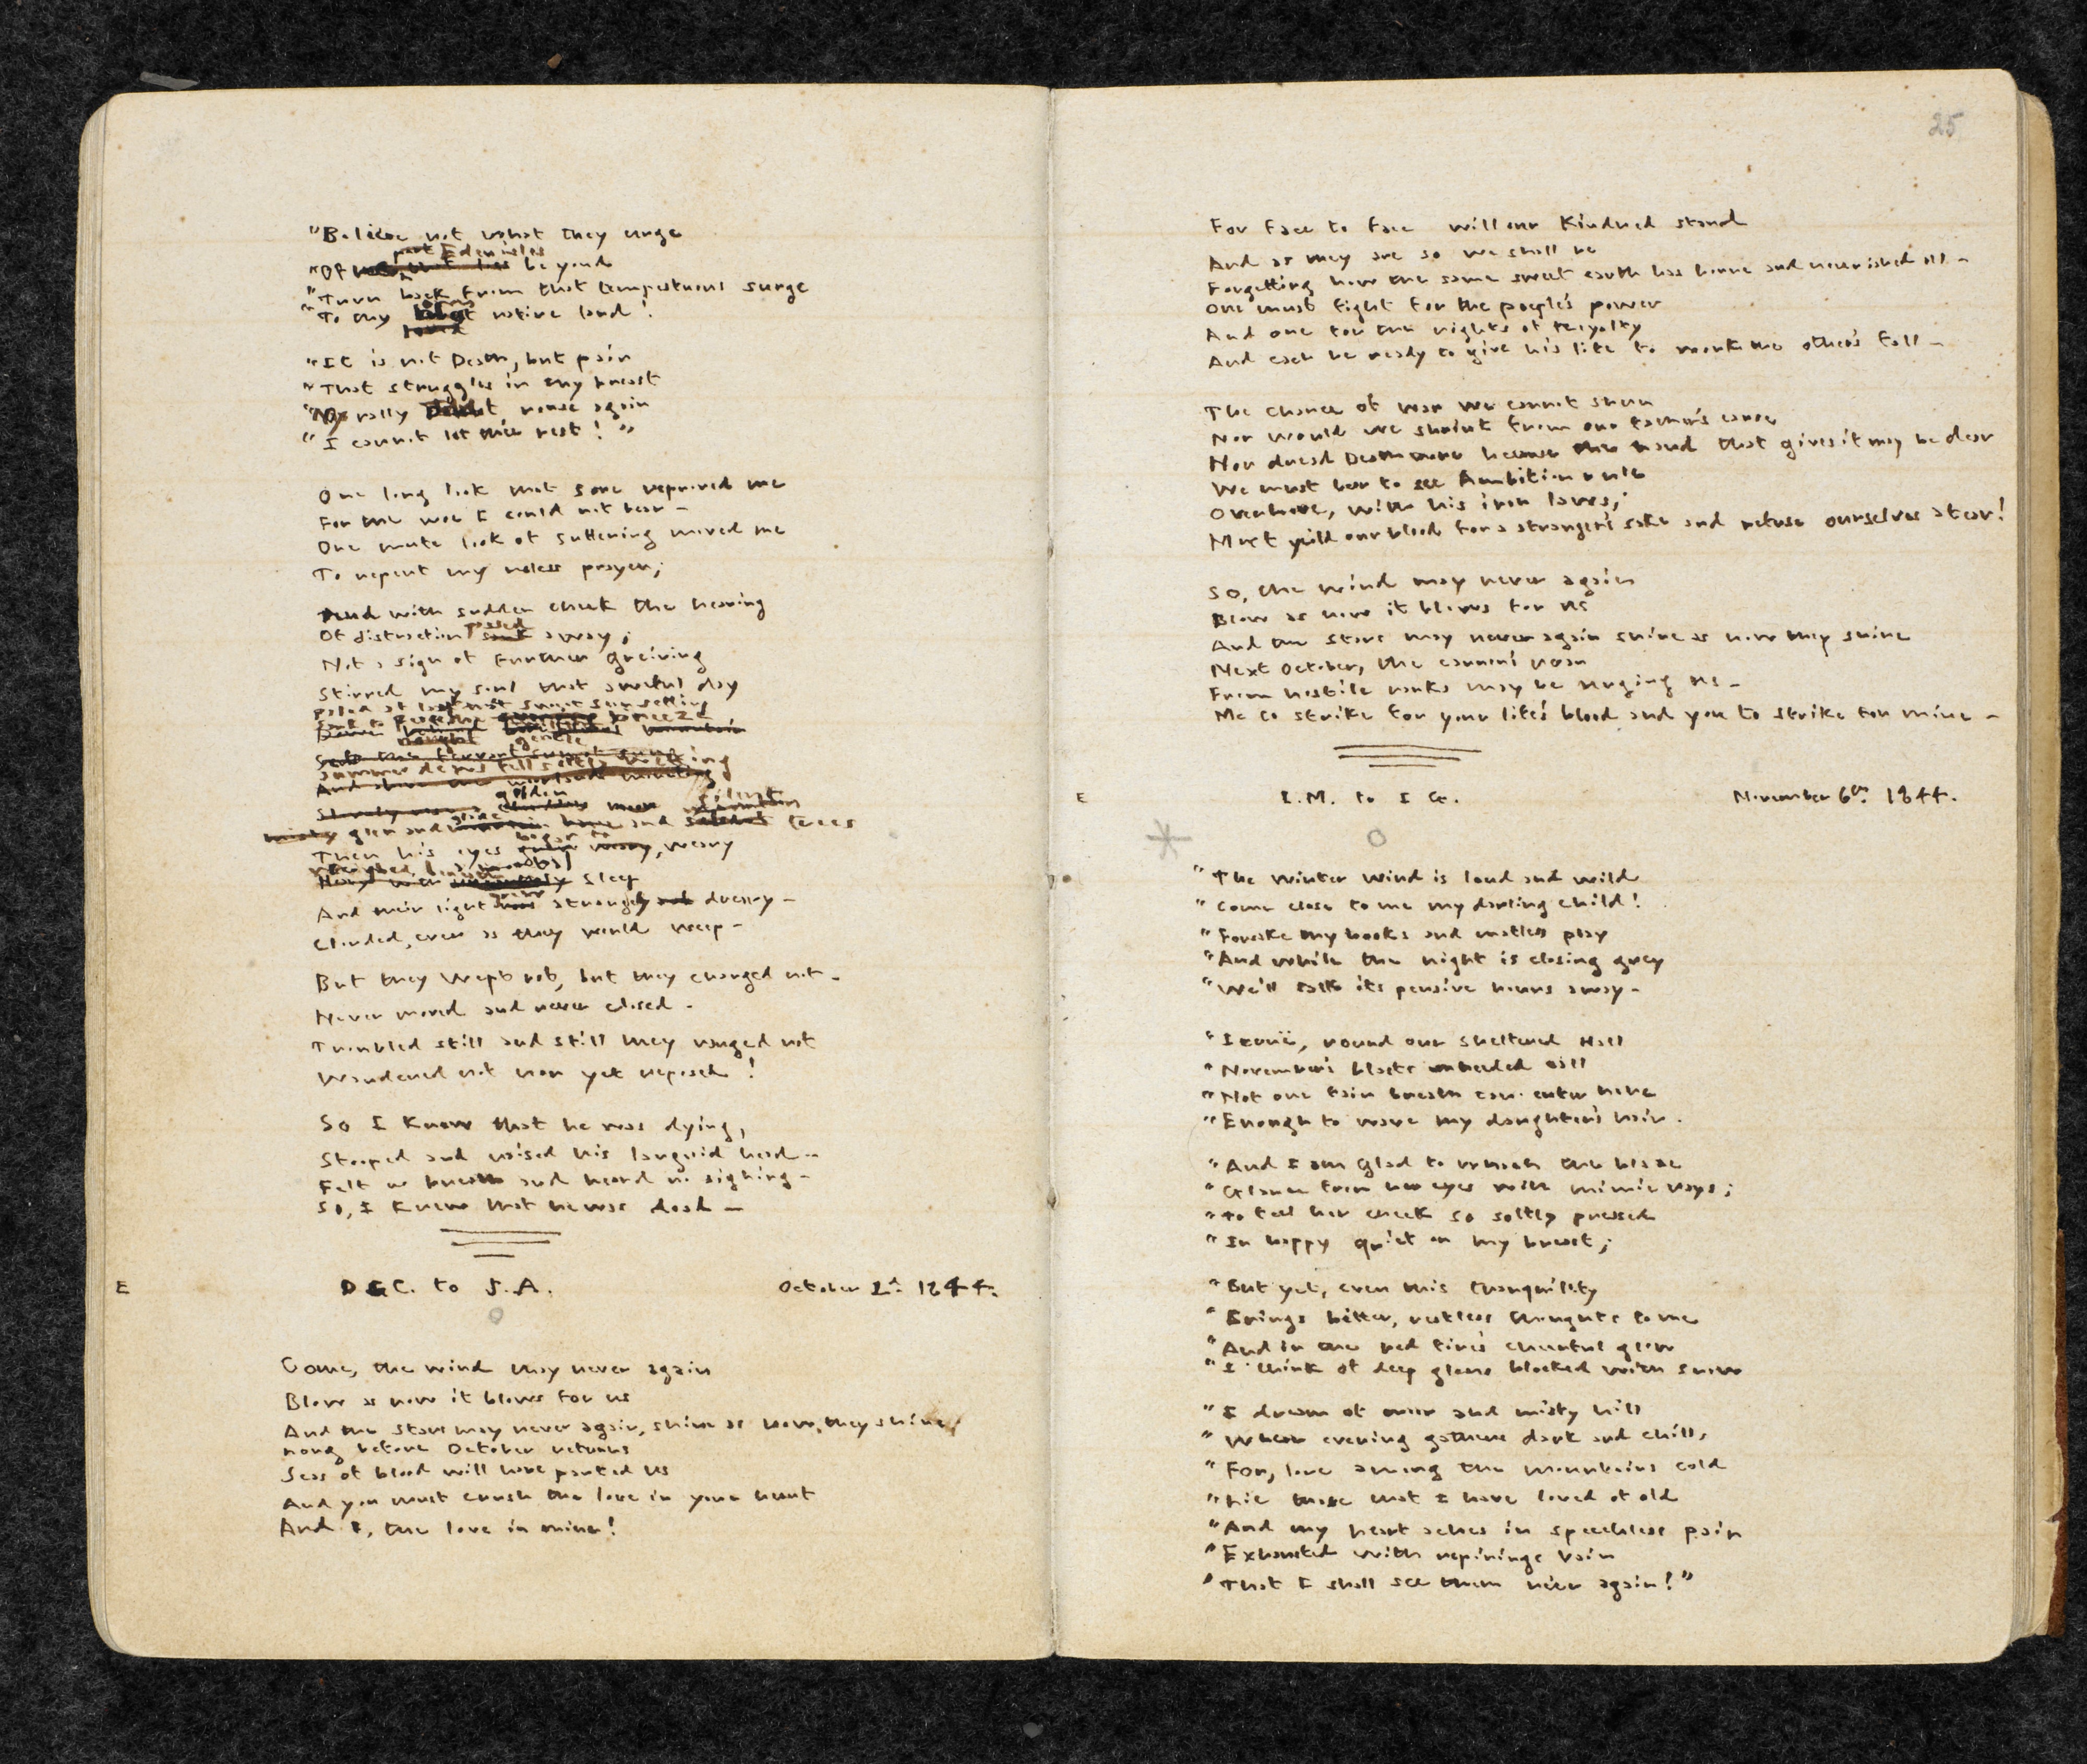 "Beleive not what they urge
past Eden isles
"Of beyond
"Turn back from that tempestuous surge
"To my native land!
"It is not Death, but pain
"That struggles in my breast
"Nay rally rouse again
"I cannot let thee rest!"
One long look that sore reproved me
For the woe I could not bear -
One mute look of suffering moved me
To repent my useless prayer;
And with sudden check the heaving
Of distraction passed away;
Not a sign of further greiving
Stirred my soul that awful day
Paled at last the sweet sun setting
Sunk to peace the breeze
Summer dews fell softly wetting
glen and glade and silent trees
Then his eyes began to weary,
Weighed beneath a mortal sleep
And their light grew strangely dreary -
Clouded, even as they would weep -
But they wept not, but they changed not -
Never moved and never closed -
Troubled still and still they ranged not
Wandered not nor yet reposed!
So I knew that he was dying,
Stooped and raised his languid head -
Felt no breath and heard no sighing -
So, I knew that he was dead -
E D.G.C. to J.A. October 2d. 1844.
Come, the wind may never again
Blow as now it blows for us
And the stars may never again, shine as now they shine;
Long before October returns
Seas of blood will have parted us
And you must crush the love in your heart
And I, the love in mine!
25
For face to face will our Kindred stand
And as they are so we shall be
Forgetting how the same sweet earth has borne and nourished all -
One must fight for the people's power
And one for the rights of royalty
And each be ready to give his life to work the other's fall -
The chance of war we cannot shun
Nor would we shrink from our father's cause
Nor dread Death more because the hand that gives it may be dear
We must bear to see Ambition rule
Over Love, with his iron laws;
Must yeild our blood for a stranger's sake and refuse ourselves a tear!
So, the wind may never again
Blow as now it blows for us
And the stars may never again shine as now they shine
Next October, the cannon's roar
From hostile ranks may be urging us -
Me to strike for your life's blood and you to strike for mine -
E I.M. to I G. November 6th. 1844.
"The winter wind is loud and wild
"Come close to me my darling child!
"Forsake thy books and mateless play
"And while the night is closing grey
"We'll talk its pensive hours away -
"Iernë, round our sheltered Hall
"November's blasts unheeded call
"Not one fain breath can enter here
"Enough to wave my daughter's hair.
"And I am glad to watch the blaze
"Glance from her eyes with mimic rays;
"To feel her cheek so softly pressed
"In happy quiet on my breast;
"But yet, even this tranquillity
"Brings bitter, restless thoughts to me
"And in the red fire's cheerful glow
"I think of deep glens blocked with snow
"I dream of moor and misty hill
"Where evening gathers dark and chill,
"For, lone among the mountains cold
"Lie those that I have loved of old
"And my heart aches in speechless pain
"Exhausted with repinings vain
"That I shall see them ne'er again!"